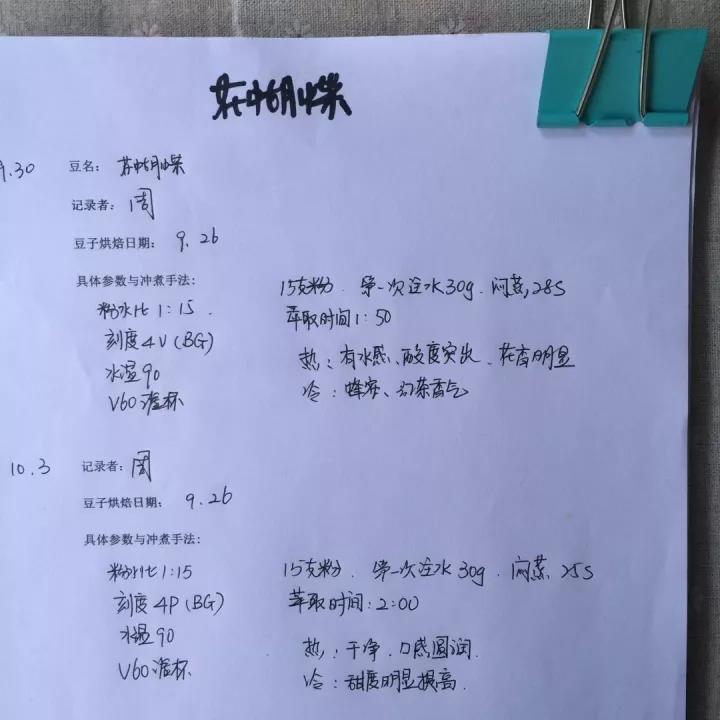 花蝴蝶
9.30 豆名: 花蝴蝶
记录者: 周
豆子烘焙日期: 9.26
具体参数与冲煮手法:
粉水比 1:15. 15克粉. 第一次注水30g. 闷蒸, 28s
刻度 4V (BG) 萃取时间 1:50
水温 90 热: 有水感、酸度突出、花香明显
V60滤杯 冷: 蜂蜜、红茶香气
10.3 记录者: 周
豆子烘焙日期: 9.26
具体参数与冲煮手法:
粉水比 1:15 15克粉. 第一次注水 30g. 闷蒸 25s
刻度 4P (BG) 萃取时间: 2:00
水温 90 热: 干净. 口感圆润.
V60滤杯 冷: 甜度明显提高.